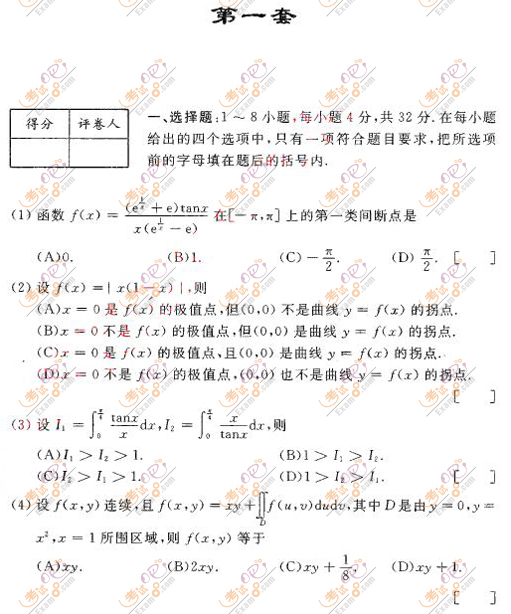 第一套
得分 评卷人
一、选择题:1～8小题,每小题4分,共32分.在每小题
给出的四个选项中,只有一项符合题目要求,把所选项
前的字母填在题后的括号内.
(1) 函数 f(x) = (e^{1/x} + e)tanx / x(e^{1/x} − e) 在[−π,π]上的第一类间断点是
(A)0. (B)1. (C) −π/2. (D) π/2. [ ]
(2) 设 f(x) = | x(1−x) |,则
(A)x = 0 是 f(x) 的极值点,但(0,0) 不是曲线 y = f(x) 的拐点.
(B)x = 0 不是 f(x) 的极值点,但(0,0) 是曲线 y = f(x) 的拐点.
(C)x = 0 是 f(x) 的极值点,且(0,0) 是曲线 y = f(x) 的拐点.
(D)x = 0 不是 f(x) 的极值点,(0,0) 也不是曲线 y = f(x) 的拐点.
[ ]
(3) 设 I₁ = ∫₀^{π/4} tanx/x dx, I₂ = ∫₀^{π/4} x/tanx dx,则
(A)I₁ > I₂ > 1. (B)1 > I₁ > I₂.
(C)I₂ > I₁ > 1. (D)1 > I₂ > I₁. [ ]
(4) 设 f(x,y) 连续,且 f(x,y) = xy + ∬_D f(u,v)dudv,其中 D 是由 y = 0,y =
x²,x = 1 所围区域,则 f(x,y) 等于
(A)xy. (B)2xy. (C)xy + 1/8. (D)xy + 1.
[ ]